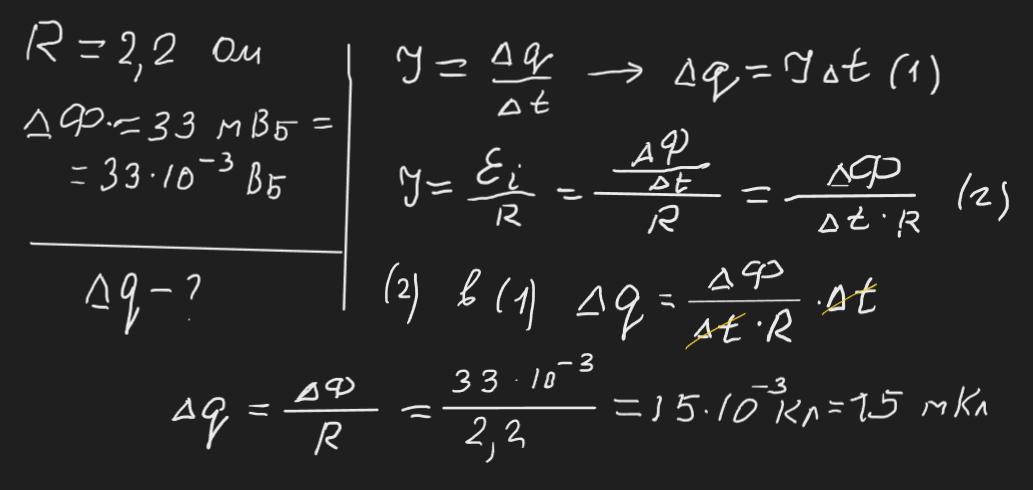 R = 2,2 ом
ΔΦ = 33 мВб =
= 33·10⁻³ Вб
Δq - ?
I = Δq/Δt → Δq = IΔt (1)
I = ℰi/R = (ΔΦ/Δt)/R = ΔΦ/(Δt·R) (2)
(2) в (1) Δq = ΔΦ/(Δt·R) ·Δt
Δq = ΔΦ/R = 33·10⁻³/2,2 = 15·10⁻³ Кл = 15 мКл